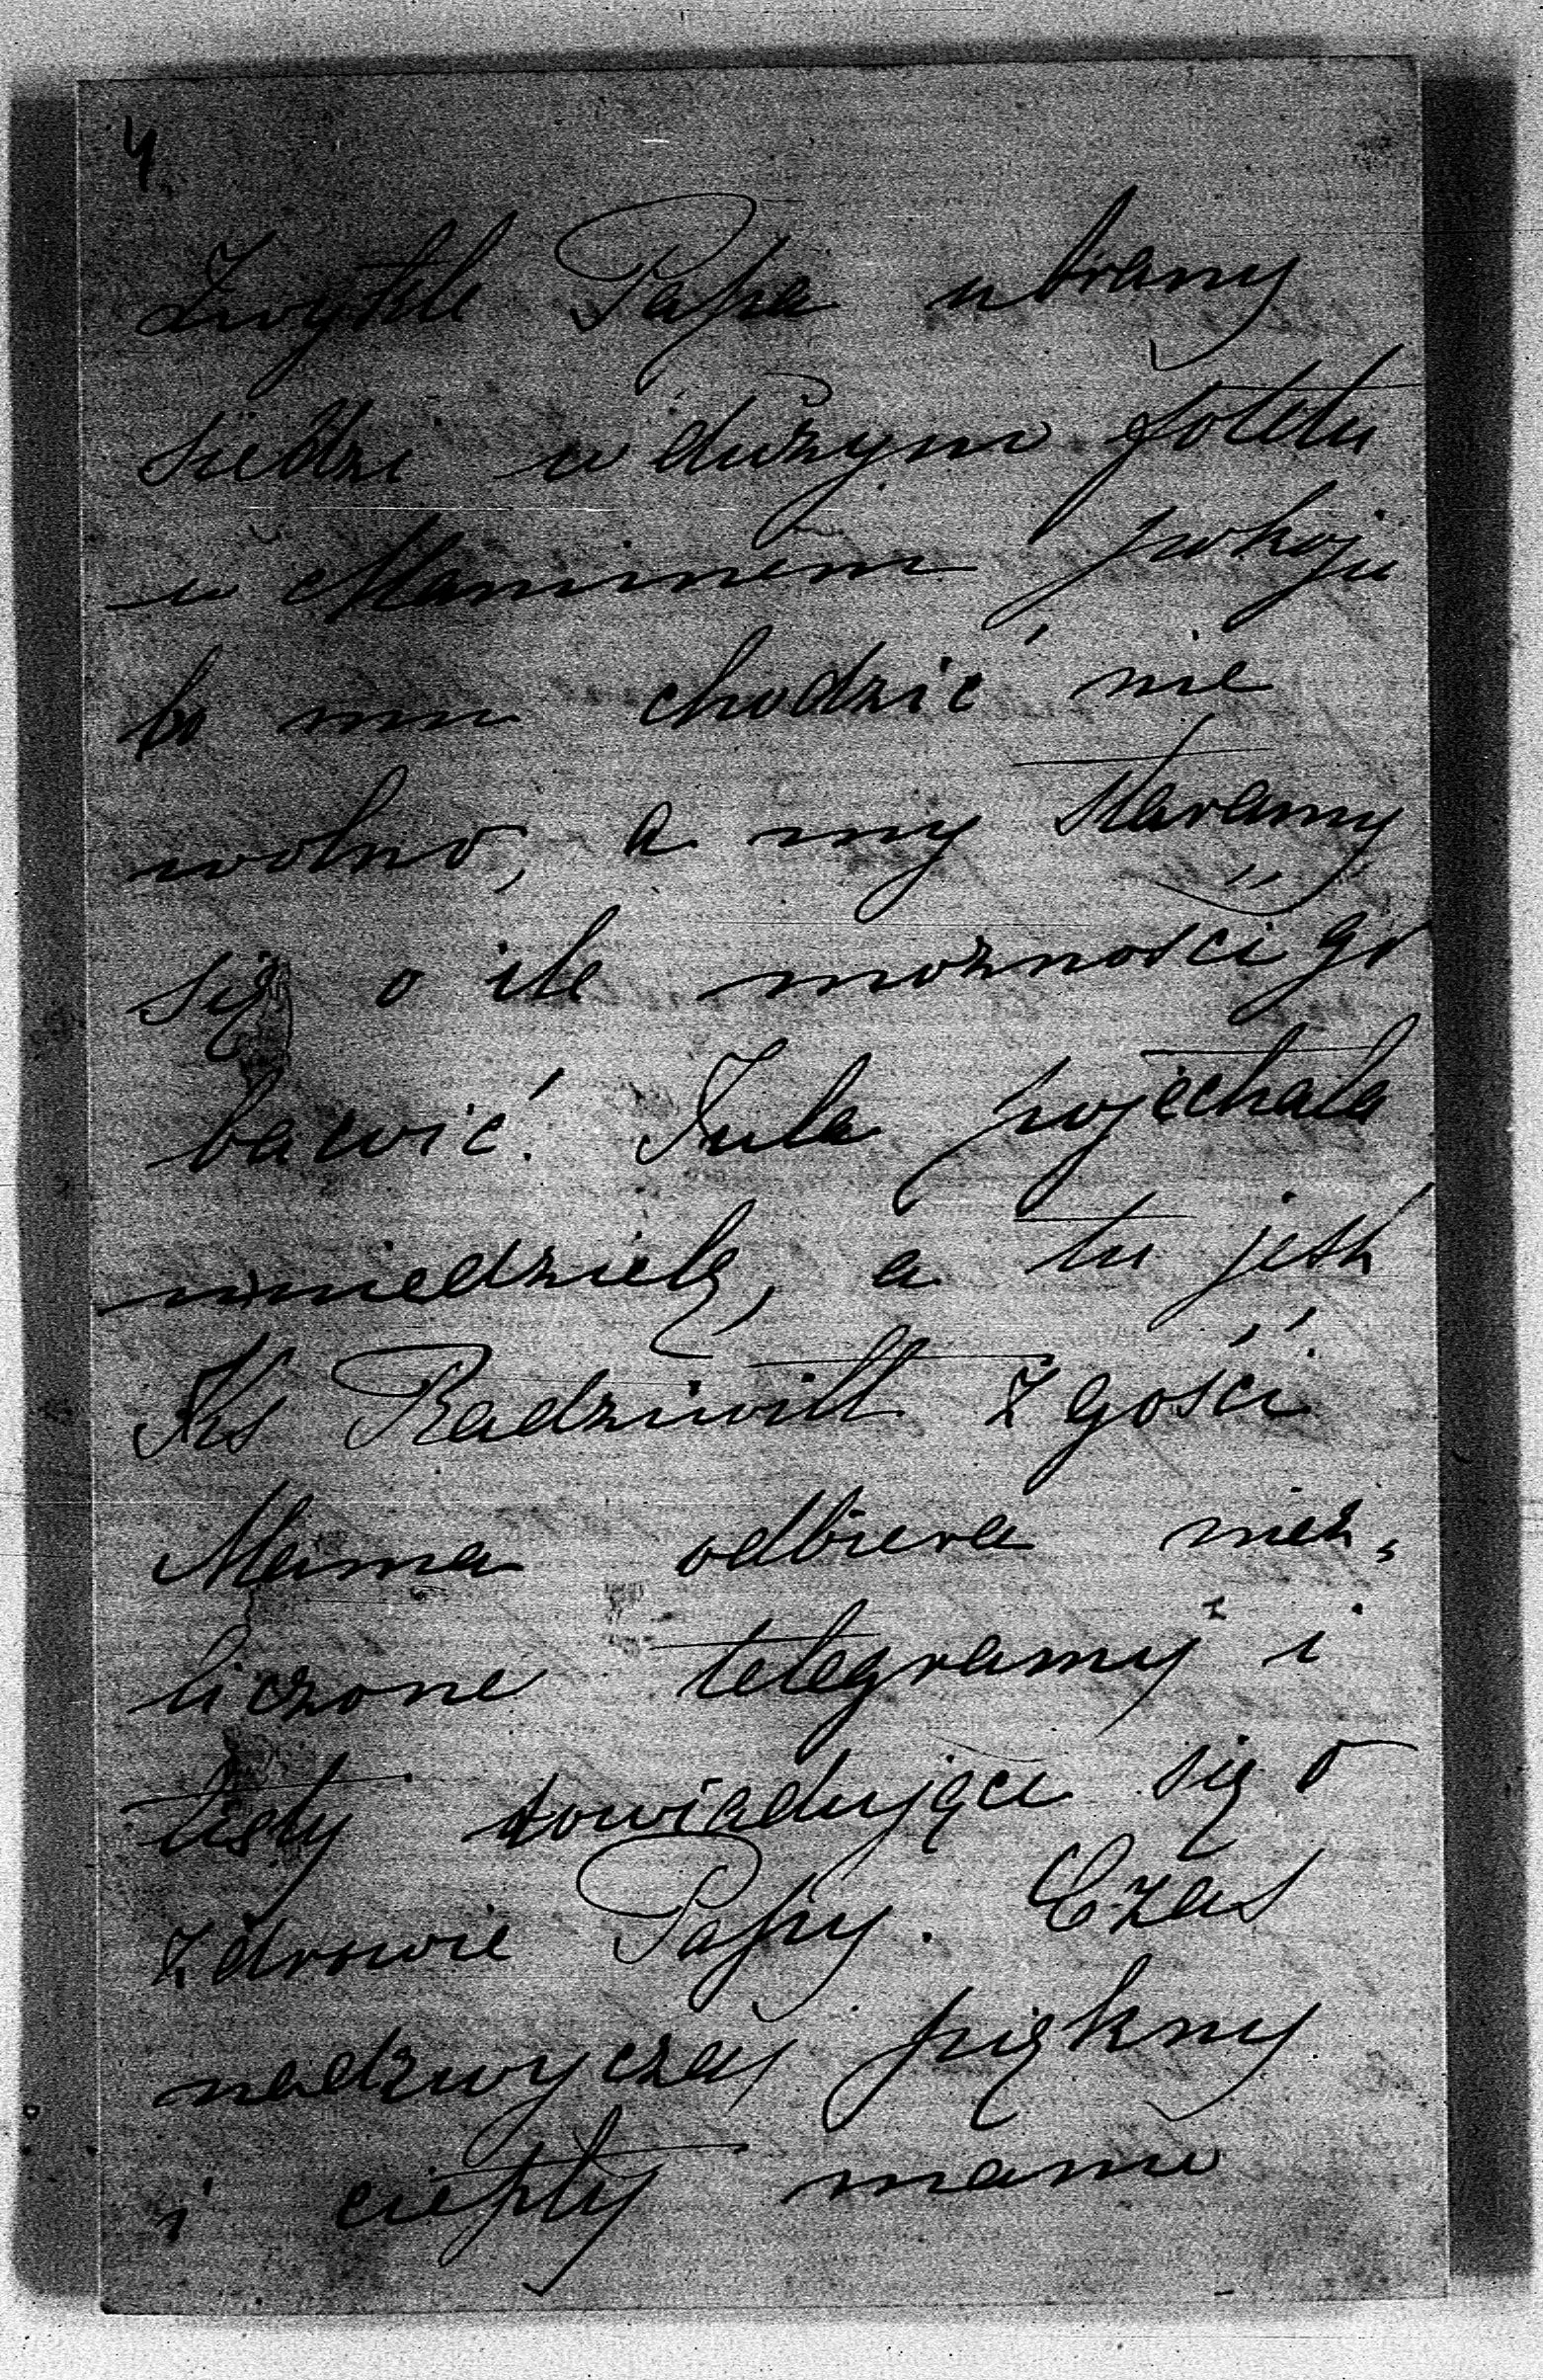 4
Zwykle Papa ubrany
siedzi w dużym fotelu
w Maminem pokoju
bo mu chodzić nie
wolno, a my staramy
się o ile możności go
bawić. Jula pojechała
w niedzielę, a tu jest
Ks Radziwiłł z gości
Mama odbiera niez,
liczone telegramy i
listy dowiadujące się o
zdrowie Papy. Czas
nadzwyczaj piękny
i ciepły mamy